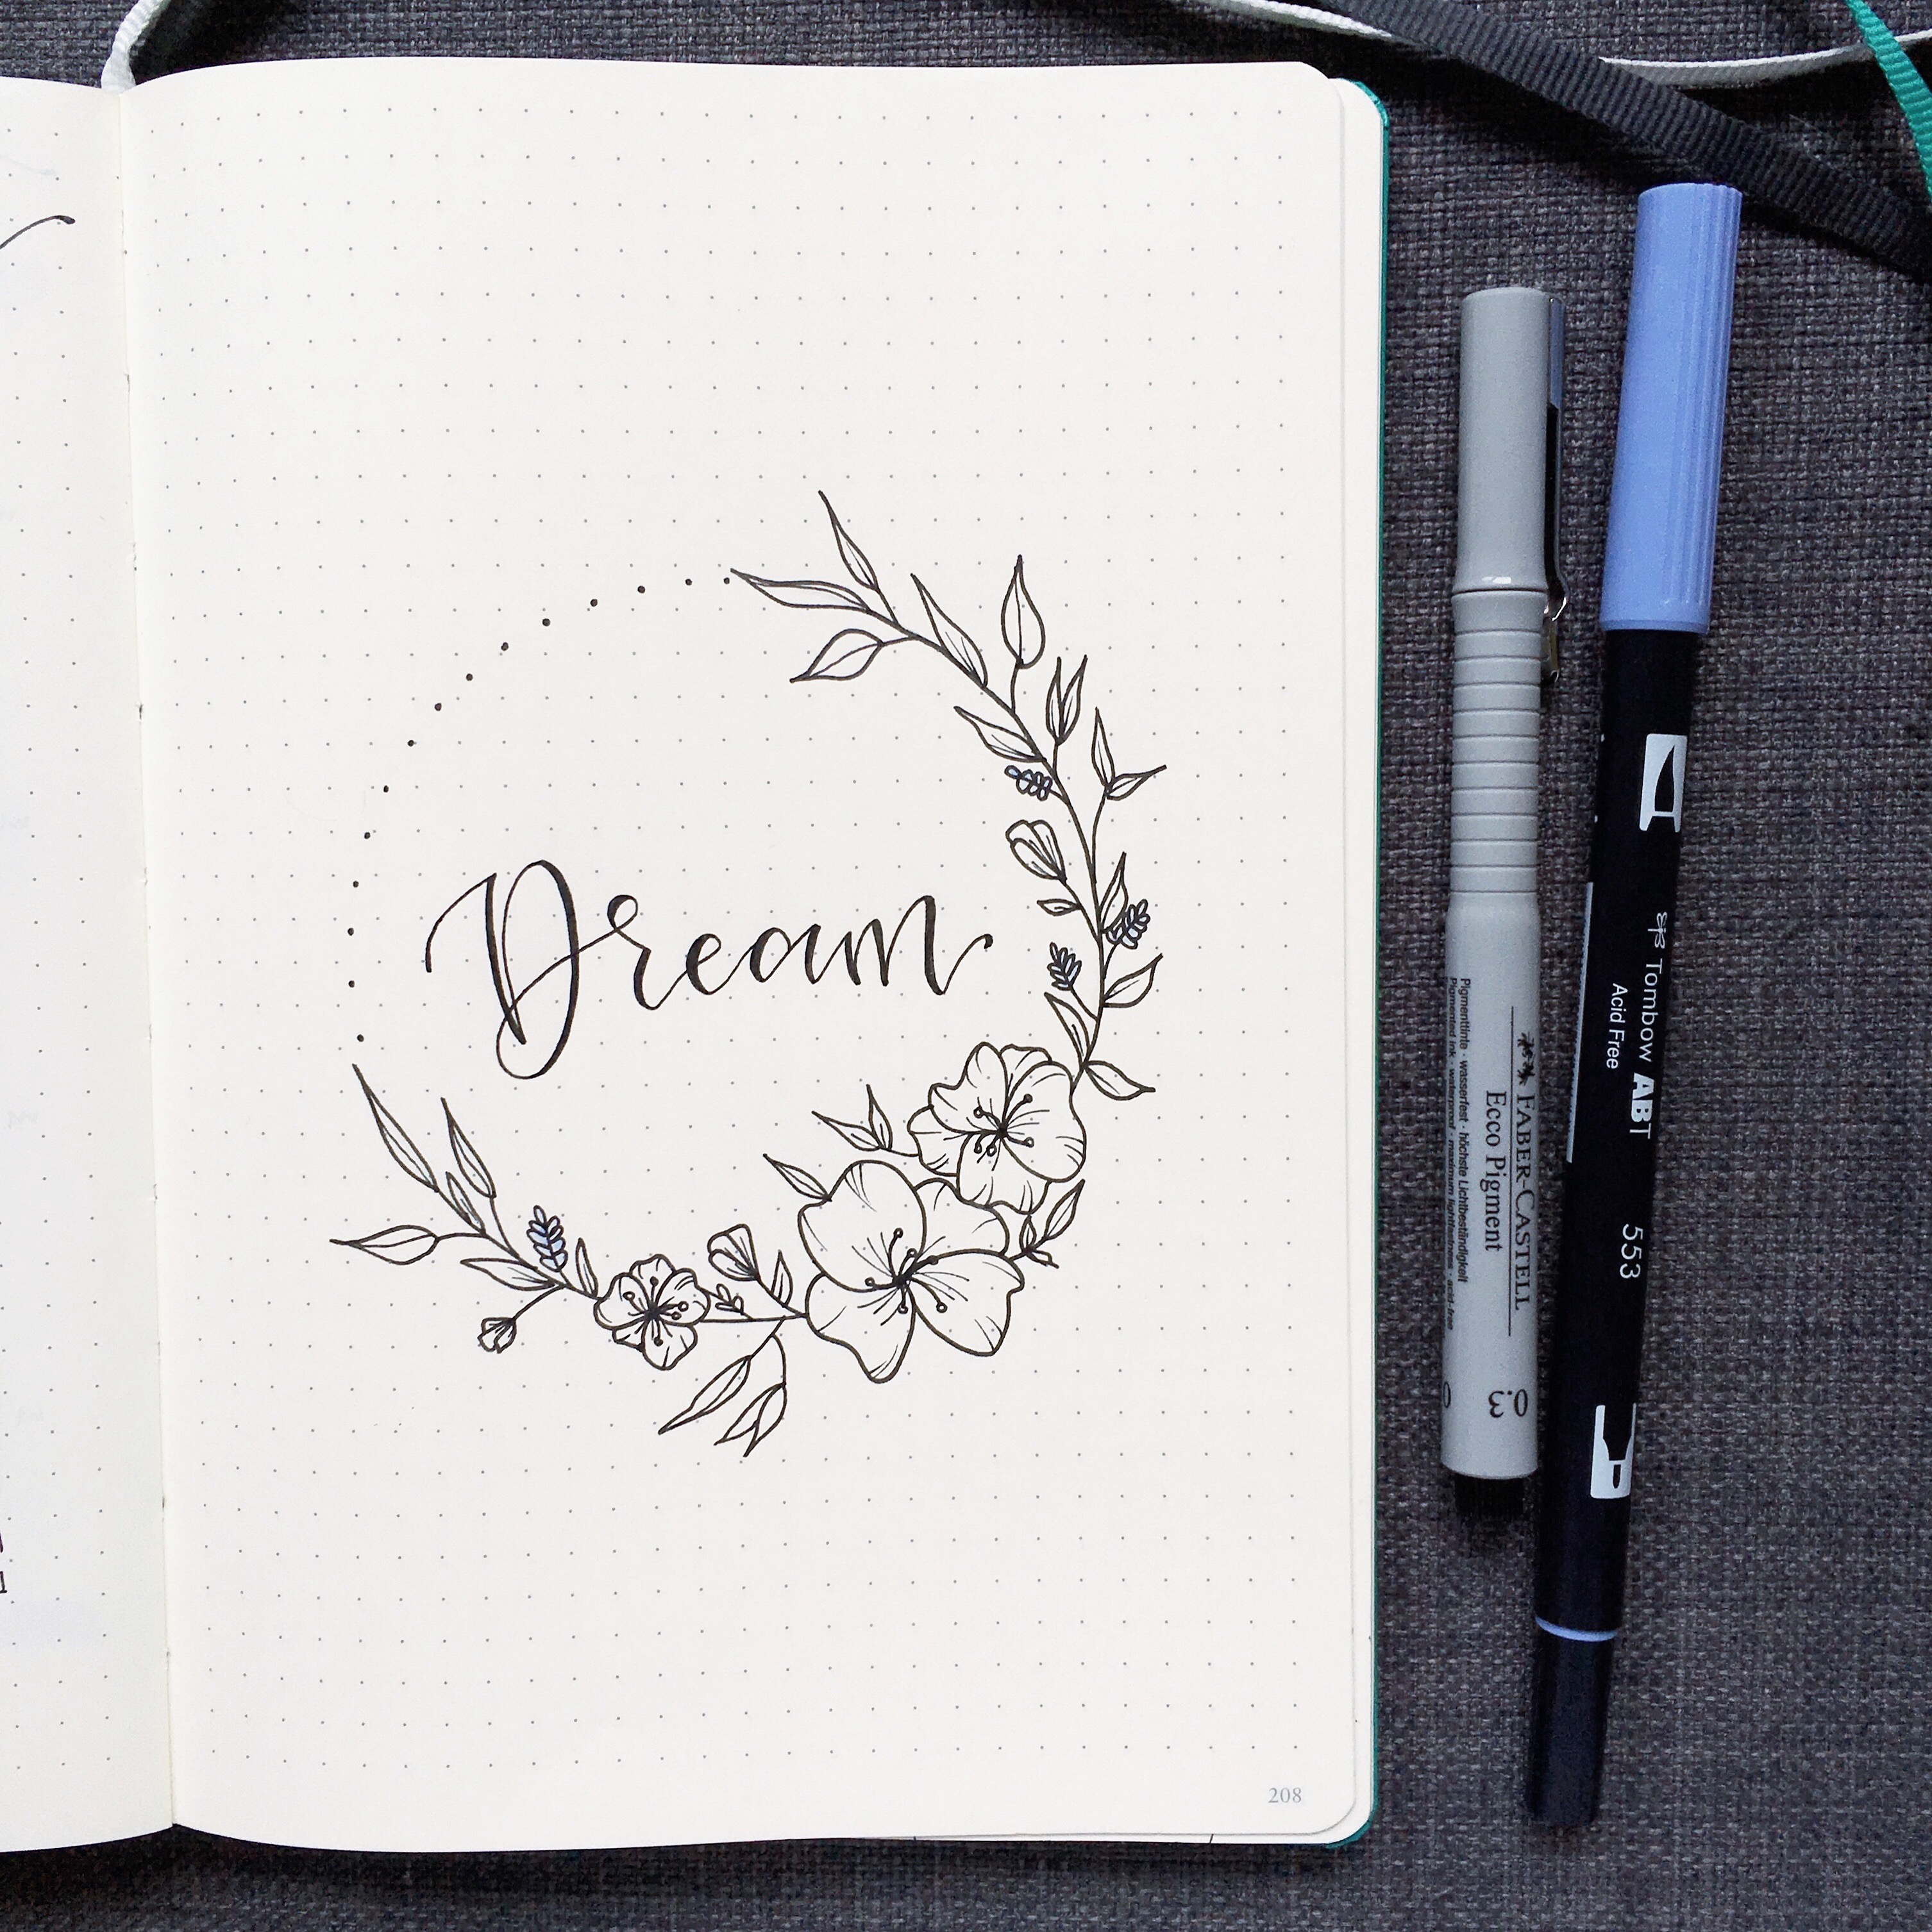 Dream
208
FABER-CASTELL
Ecco Pigment
Pigmenttinte · wasserfest · höchste Lichtbeständigkeit
Pigmented ink · waterproof · maximum lightfastness · acid-free
0.3
Tombow ABT
Acid Free
553